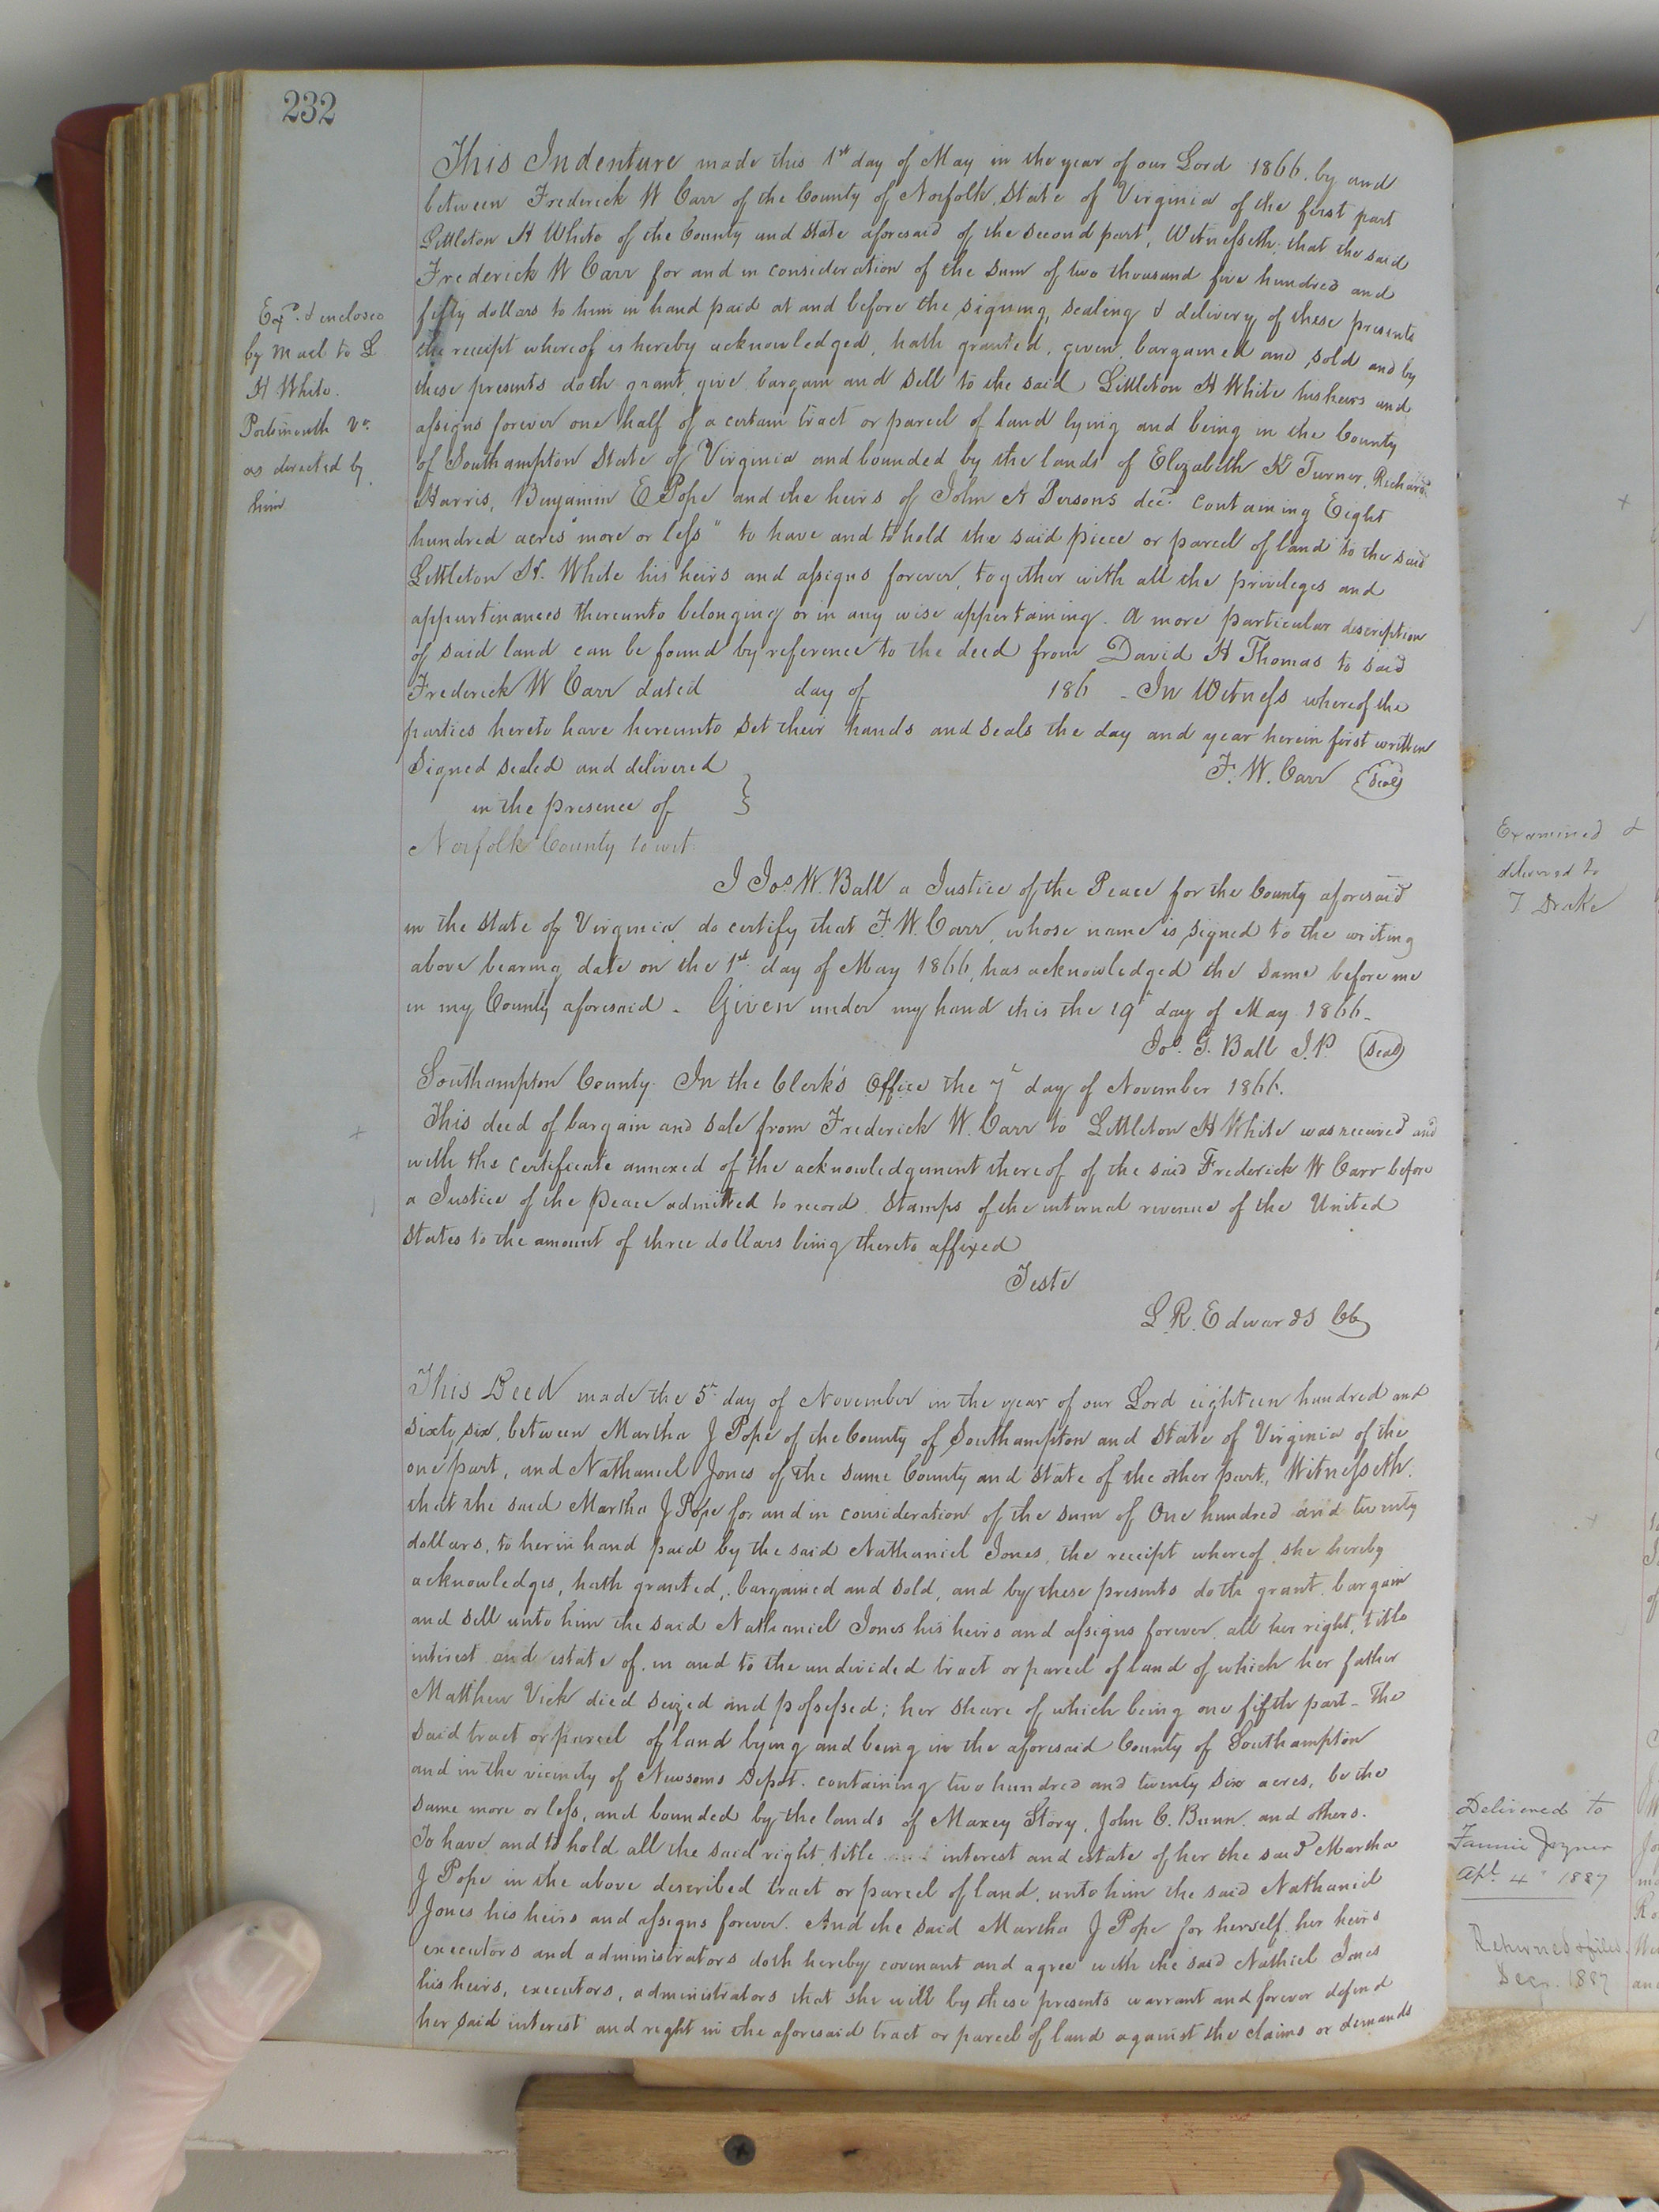 232
This Indenture made this 1st day of May in the year of our Lord 1866. by and
between Frederick W Carr of the County of Norfolk, State of Virginia of the first part
Littleton H White of the County and State aforesaid of the second part, Witnesseth; that the said
Frederick W Carr for and in consideration of the sum of two thousand five hundred and
fifty dollars to him in hand paid at and before the signing, sealing & delivery of these presents
the receipt whereof is hereby acknowledged, hath granted, given, bargained and sold and by
these presents doth grant, give bargain and sell to the said Littleton H White his heirs and
assigns forever one half of a certain tract or parcel of land lying and being in the County
of Southampton State of Virginia and bounded by the lands of Elizabeth K Turner, Richard
Harris, Benjamin E Pope and the heirs of John A Persons decd. containing Eight
hundred acres "more or less" to have and to hold the said piece or parcel of land to the said
Littleton H. White his heirs and assigns forever, together with all the privileges and
appurtinances thereunto belonging or in any wise appertaining. A more particular description
of said land can be found by reference to the deed from David H Thomas to said
Frederick W Carr dated day of 186 - In Witness whereof the
parties hereto have hereunto set their hands and seals the day and year herein first written
Signed sealed and delivered } F. W. Carr (Seal)
in the presence of
Norfolk County to wit:
I Jos. W. Ball a Justice of the Peace for the County aforesaid
in the State of Virginia, do certify that F. W. Carr, whose name is signed to the writing
above bearing date on the 1st day of May 1866, has acknowledged the same before me
in my County aforesaid - Given under my hand this the 19th day of May 1866-
Jos. G. Ball J.P. (Seal)
Southampton County. In the Clerk's Office the 7th day of November 1866.
This deed of bargain and sale from Frederick W. Carr to Littleton H White was received and
with the certificate annexed of the acknowledgement thereof of the said Frederick W Carr before
a Justice of the Peace admitted to record. Stamps of the internal revenue of the United
States to the amount of three dollars being thereto affixed
Teste
L. R. Edwards CC
This Deed made the 5th day of November in the year of our Lord eighteen hundred and
sixty six, between Martha J Pope of the County of Southampton and State of Virginia of the
one part, and Nathaniel Jones of the same County and State of the other part, Witnesseth.
that the said Martha J Pope for and in consideration of the sum of One hundred and twenty
dollars, to her in hand paid by the said Nathaniel Jones, the receipt whereof she hereby
acknowledges, hath granted, bargained and sold, and by these presents doth grant, bargain
and sell unto him the said Nathaniel Jones his heirs and assigns forever, all her right, title
interest and estate of, in and to the undivided tract or parcel of land of which her father
Matthew Vick died seized and possessed; her share of which being one fifth part - The
said tract or parcel of land lying and being in the aforesaid County of Southampton
and in the vicinity of Newsoms Depot. containing two hundred and twenty six acres, be the
same more or less, and bounded by the lands of Maxey Story, John C. Bunn, and others.
To have and to hold all the said right, title and interest and estate of her the said Martha
J Pope in the above described tract or parcel of land, unto him the said Nathaniel
Jones his heirs and assigns forever. And the said Martha J Pope for herself, her heirs
executors and administrators doth hereby covenant and agree with the said Nathiel Jones
his heirs, executors, administrators that she will by these presents warrant and forever defend
her said interest and right in the aforesaid tract or parcel of land against the claims or demands
Exd. & enclosed
by mail to L
H White.
Portsmouth Va.
as directed by
him
Examined &
delivered to
T Drake
Delivered to
Fannie Joyner
Apl. 4th 1887
Returned & filed
Decr. 1887